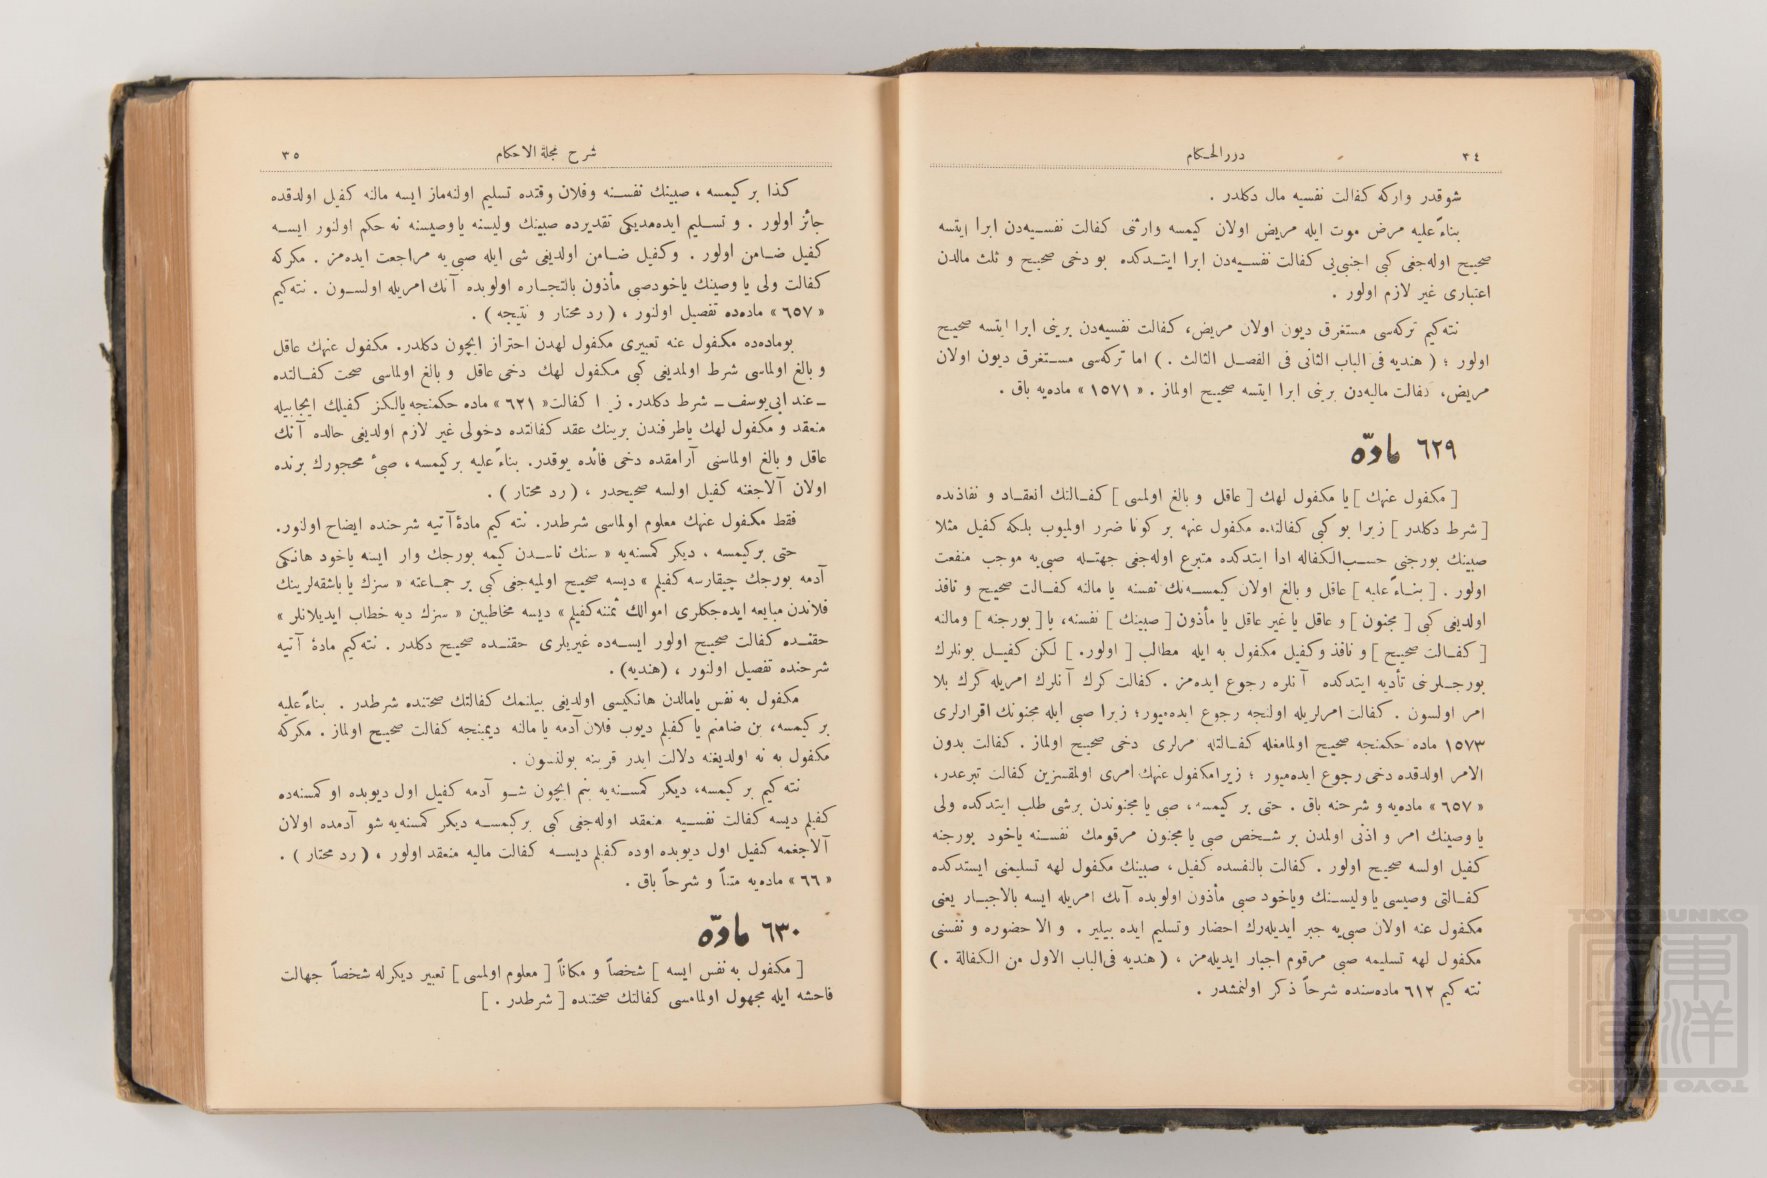 ٣٤ درر الحكام
شوقدر واركه كفالت نفسيه مال دكلدر .
بناءً عليه مرض موت ايله مريض اولان كيمسه وارثى كفالت نفسيه‌دن ابرا ايتسه
صحيح اوله‌جغى كبى اجنبى‌يى كفالت نفسيه‌دن ابرا ايتدكده بو دخى صحيح و ثلث مالدن
اعتبارى غير لازم اولور .
نته‌كيم تركه‌سى مستغرق ديون اولان مريض، كفالت نفسيه‌دن برينى ابرا ايتسه صحيح
اولور ؛ ( هنديه فى الباب الثانى فى الفصل الثالث . ) اما تركه‌سى مستغرق ديون اولان
مريض، كفالت ماليه‌دن برينى ابرا ايتسه صحيح اولماز . « ١٥٧١ » ماده‌يه باق .
٦٢٩ مادّه
[ مكفول عنهك ] يا مكفول لهك [ عاقل و بالغ اولمسى ] كفالتك انعقاد و نفاذنده
[ شرط دكلدر ] زيرا بو كبى كفالتده مكفول عنهه بر كونا ضرر اولميوب بلكه كفيل مثلا
صبينك بورجنى حسب‌الكفاله ادا ايتدكده متبرع اوله‌جغى جهتله صبى‌يه موجب منفعت
اولور . [ بناءً عليه ] عاقل و بالغ اولان كيمسه‌نك نفسنه يا مالنه كفالت صحيح و نافذ
اولديغى كبى [ مجنون ] و عاقل يا غير عاقل يا مأذون [ صبينك ] نفسنه، يا [ بورجنه ] ومالنه
[ كفالت صحيح ] و نافذ وكفيل مكفول به ايله مطالب [ اولور. ] لكن كفيل بونلرك
بورجلرنى تأديه ايتدكده آنلره رجوع ايده‌مز . كفالت كرك آنلرك امريله كرك بلا
امر اولسون . كفالت امرلريله اولنجه رجوع ايده‌ميور؛ زيرا صبى ايله مجنونك اقرارلرى
١٥٧٣ ماده حكمنجه صحيح اولمامغله كفالتله مرلرى دخى صحيح اولماز . كفالت بدون
الامر اولدقده دخى رجوع ايده‌ميور ؛ زيرا مكفول عنهك امرى اولمقسزين كفالت تبرعدر،
« ٦٥٧ » ماده‌يه و شرحنه باق . حتى بر كيمسه، صبى يا مجنوندن برشى طلب ايتدكده ولى
يا وصينك امر و اذنى اولمدن بر شخص صبى يا مجنون مرقومك نفسنه ياخود بورجنه
كفيل اولسه صحيح اولور . كفالت بالنفسده كفيل، صبينك مكفول لهه تسليمنى ايستدكده
كفالتى وصيسى يا وليسنك وياخود صبى مأذون اولوبده آنك امريله ايسه بالاجبار يعنى
مكفول عنه اولان صبى‌يه جبر ايديله‌رك احضار وتسليم ايده بيلير . و الا حضوره و نفسنى
مكفول لهه تسليمه صبى مرقوم اجبار ايديله‌مز ، ( هنديه فى‌الباب الاول من الكفالة . )
نته كيم ٦١٢ ماده‌سنده شرحاً ذكر اولنمشدر .
شرح مجلة الاحكام ٣٥
كذا بر كيمسه ، صبينك نفسنه وفلان وقتده تسليم اولنه‌ماز ايسه مالنه كفيل اولدقده
جائز اولور . و تسليم ايده‌مديكى تقديرده صبينك وليسنه يا وصيسنه نه حكم اولنور ايسه
كفيل ضامن اولور . وكفيل ضامن اولديغى شى ايله صبى يه مراجعت ايده‌مز . مكركه
كفالت ولى يا وصينك ياخودصبى مأذون بالتجاره اولوبده آنك امريله اولسون . نته‌كيم
« ٦٥٧ » ماده‌ده تفصيل اولنور ، ( رد محتار و نتيجه ) .
بوماده‌ده مكفول عنه تعبيرى مكفول لهدن احتراز ايچون دكلدر. مكفول عنهك عاقل
و بالغ اولماسى شرط اولمديغى كبى مكفول لهك دخى عاقل و بالغ اولماسى صحت كفالتده
ـ عند ابى‌يوسف ـ شرط دكلدر. زيرا كفالت « ٦٢١ » ماده حكمنجه يالكز كفيلك ايجابيله
منعقد و مكفول لهك ياطرفندن برينك عقد كفالتده دخولى غير لازم اولديغى حالده آنك
عاقل و بالغ اولماسنى آرامقده دخى فائده يوقدر. بناءً عليه بركيمسه ، صبىٔ محجورك برنده
اولان آلاجغنه كفيل اولسه صحيحدر ، ( رد محتار ) .
فقط مكفول عنهك معلوم اولماسى شرطدر. نته كيم مادهٔ آتيه شرحنده ايضاح اولنور.
حتى بركيمسه ، ديكر كمسنه‌يه « سنك ناسدن كيمه بورجك وار ايسه ياخود هانكى
آدمه بورجك چيقارسه كفيلم » ديسه صحيح اوليه‌جغى كبى بر جماعته « سزك يا باشقه‌لرينك
فلاندن مبايعه ايده‌جكلرى اموالك ثمننه‌كفيلم » ديسه مخاطبين « سزك ديه خطاب ايديلانلر »
حقنده كفالت صحيح اولور ايسه‌ده غيريلرى حقنده صحيح دكلدر . نته‌كيم مادهٔ آتيه
شرحنده تفصيل اولنور ، (هنديه) .
مكفول به نفس يامالدن هانكيسى اولديغى بيلنمك كفالتك صحتنده شرطدر . بناءً عليه
بر كيمسه، بن ضامنم يا كفيلم ديوب فلان آدمه يا مالنه ديمينجه كفالت صحيح اولماز . مكركه
مكفول به نه اولديغنه دلالت ايدر قرينه بولنسون .
نته كيم بر كيمسه، ديكر كمسنه‌يه بنم ايچون شو آدمه كفيل اول ديوبده او كمسنه‌ده
كفيلم ديسه كفالت نفسيه منعقد اوله‌جغى كبى بركيمسه ديكر كمسنه‌يه شو آدمده اولان
آلاجغمه كفيل اول ديوبده اوده كفيلم ديسه كفالت ماليه منعقد اولور ، ( رد محتار ) .
« ٦٦ » ماده‌يه متناً و شرحاً باق .
٦٣٠ مادّه
[ مكفول به نفس ايسه ] شخصاً و مكاناً [ معلوم اولمسى ] تعبير ديكرله شخصاً جهالت
فاحشه ايله مجهول اولمامسى كفالتك صحتنده [ شرطدر . ]
TOYO BUNKO
東洋文庫
TOYO BUNKO